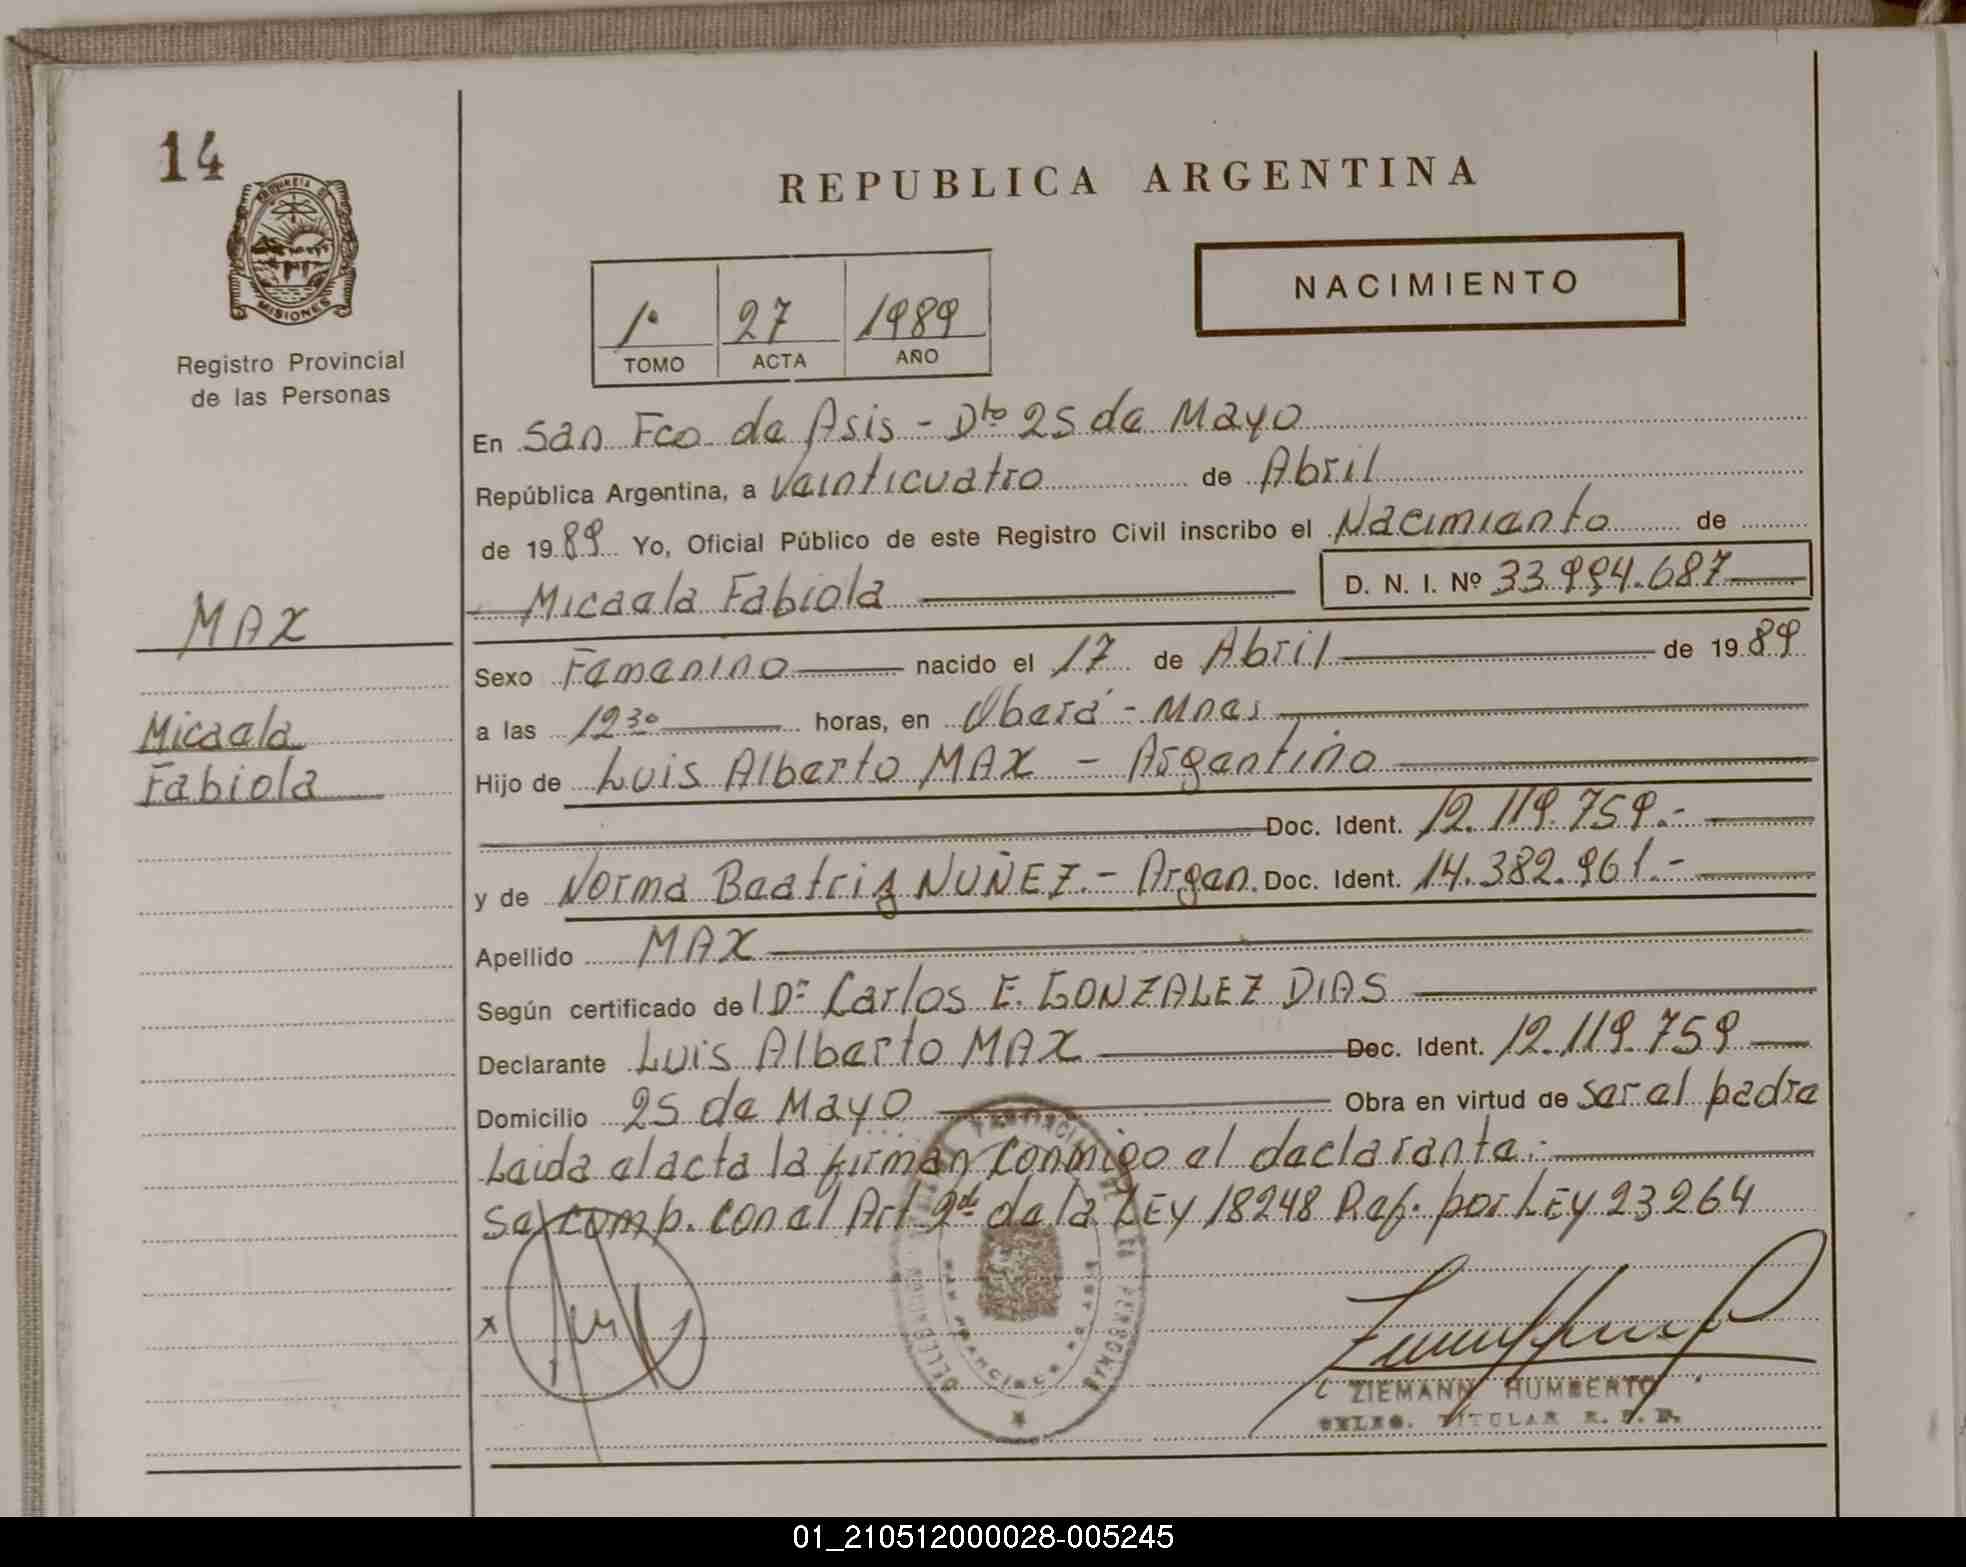 14
PROVINCIA DE
MISIONES
Registro Provincial
de las Personas
REPUBLICA ARGENTINA
NACIMIENTO
1º 27 1989
TOMO ACTA AÑO
En San Fco de Asis - Dto 25 de Mayo
República Argentina, a Veinticuatro de Abril
de 1989 Yo, Oficial Público de este Registro Civil inscribo el Nacimiento de
Micaela Fabiola D. N. I. Nº 33.994.687
MAX
Micaela
Fabiola
Sexo Femenino nacido el 17 de Abril de 1989
a las 12 30 horas, en Oberá - Mnes
Hijo de Luis Alberto MAX - Argentino
Doc. Ident. 12.119.759.-
y de Norma Beatriz NUÑEZ.- Argen. Doc. Ident. 14.382.961.-
Apellido MAX
Según certificado del Dr Carlos E. GONZALEZ DIAS
Declarante Luis Alberto MAX Doc. Ident. 12.119.759
Domicilio 25 de Mayo Obra en virtud de ser el padre
Leida el acta la firman conmigo el declarante:
Se comp. con el Art 2do de la LEY 18248 Ref. por LEY 23264
x
ZIEMANN HUMBERTO
DELEG. TITULAR R. P. P.
01_210512000028-005245